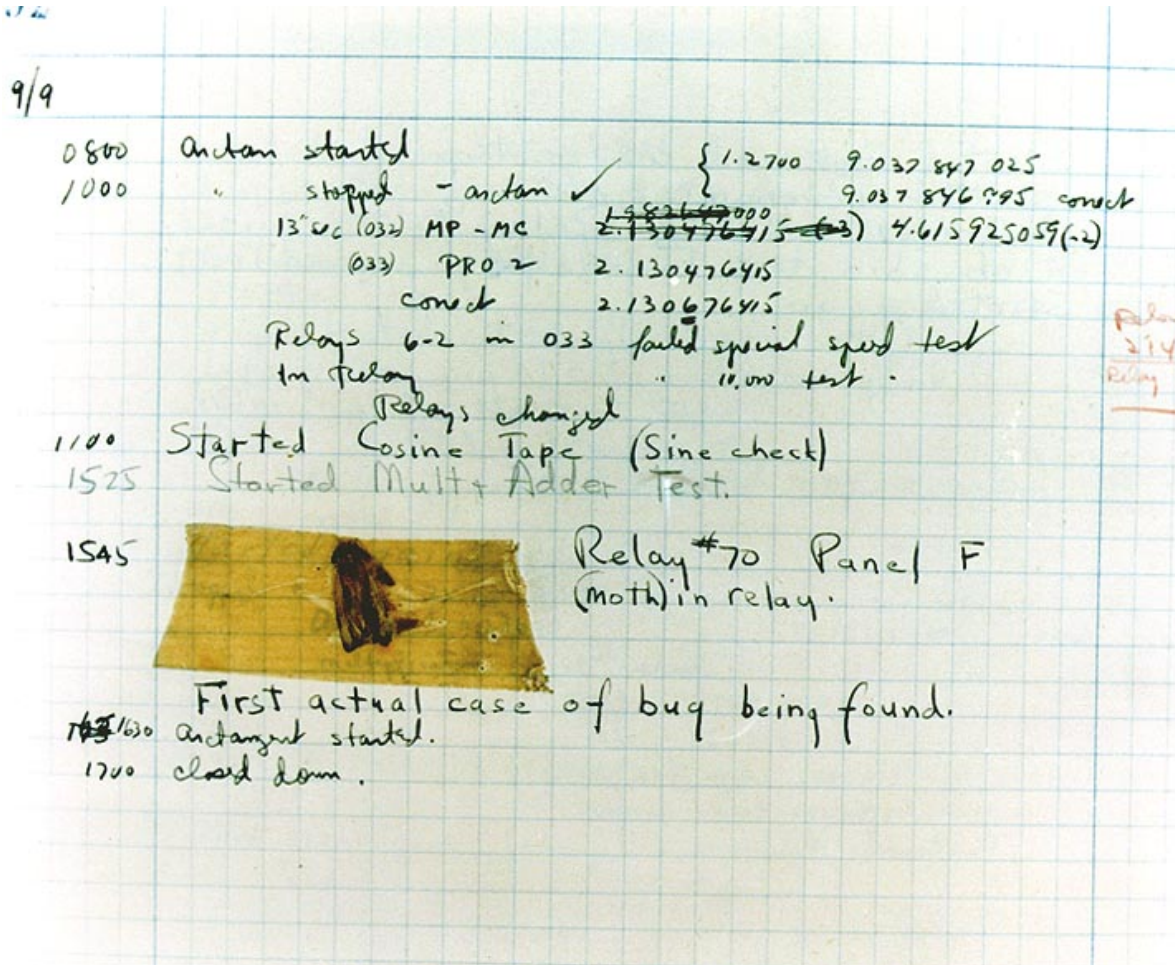 9/9
0800 Antan started { 1.2700 9.037 847 025
1000 " stopped - antan ✓ 9.037 846 995 conect
13"uc (032) MP - MC 2.130476415 (-3) 4.615925059(-2)
(033) PRO 2 2.130476415
conect 2.130676415
Relays 6-2 in 033 failed special speed test
In Relay " 10,000 test .
Relays changed
1100 Started Cosine Tape (Sine check)
1525 Started Mult + Adder Test.
1545 Relay #70 Panel F
(moth) in relay.
First actual case of bug being found.
1630 Antangent started.
1700 closed down .
Relay
Relay